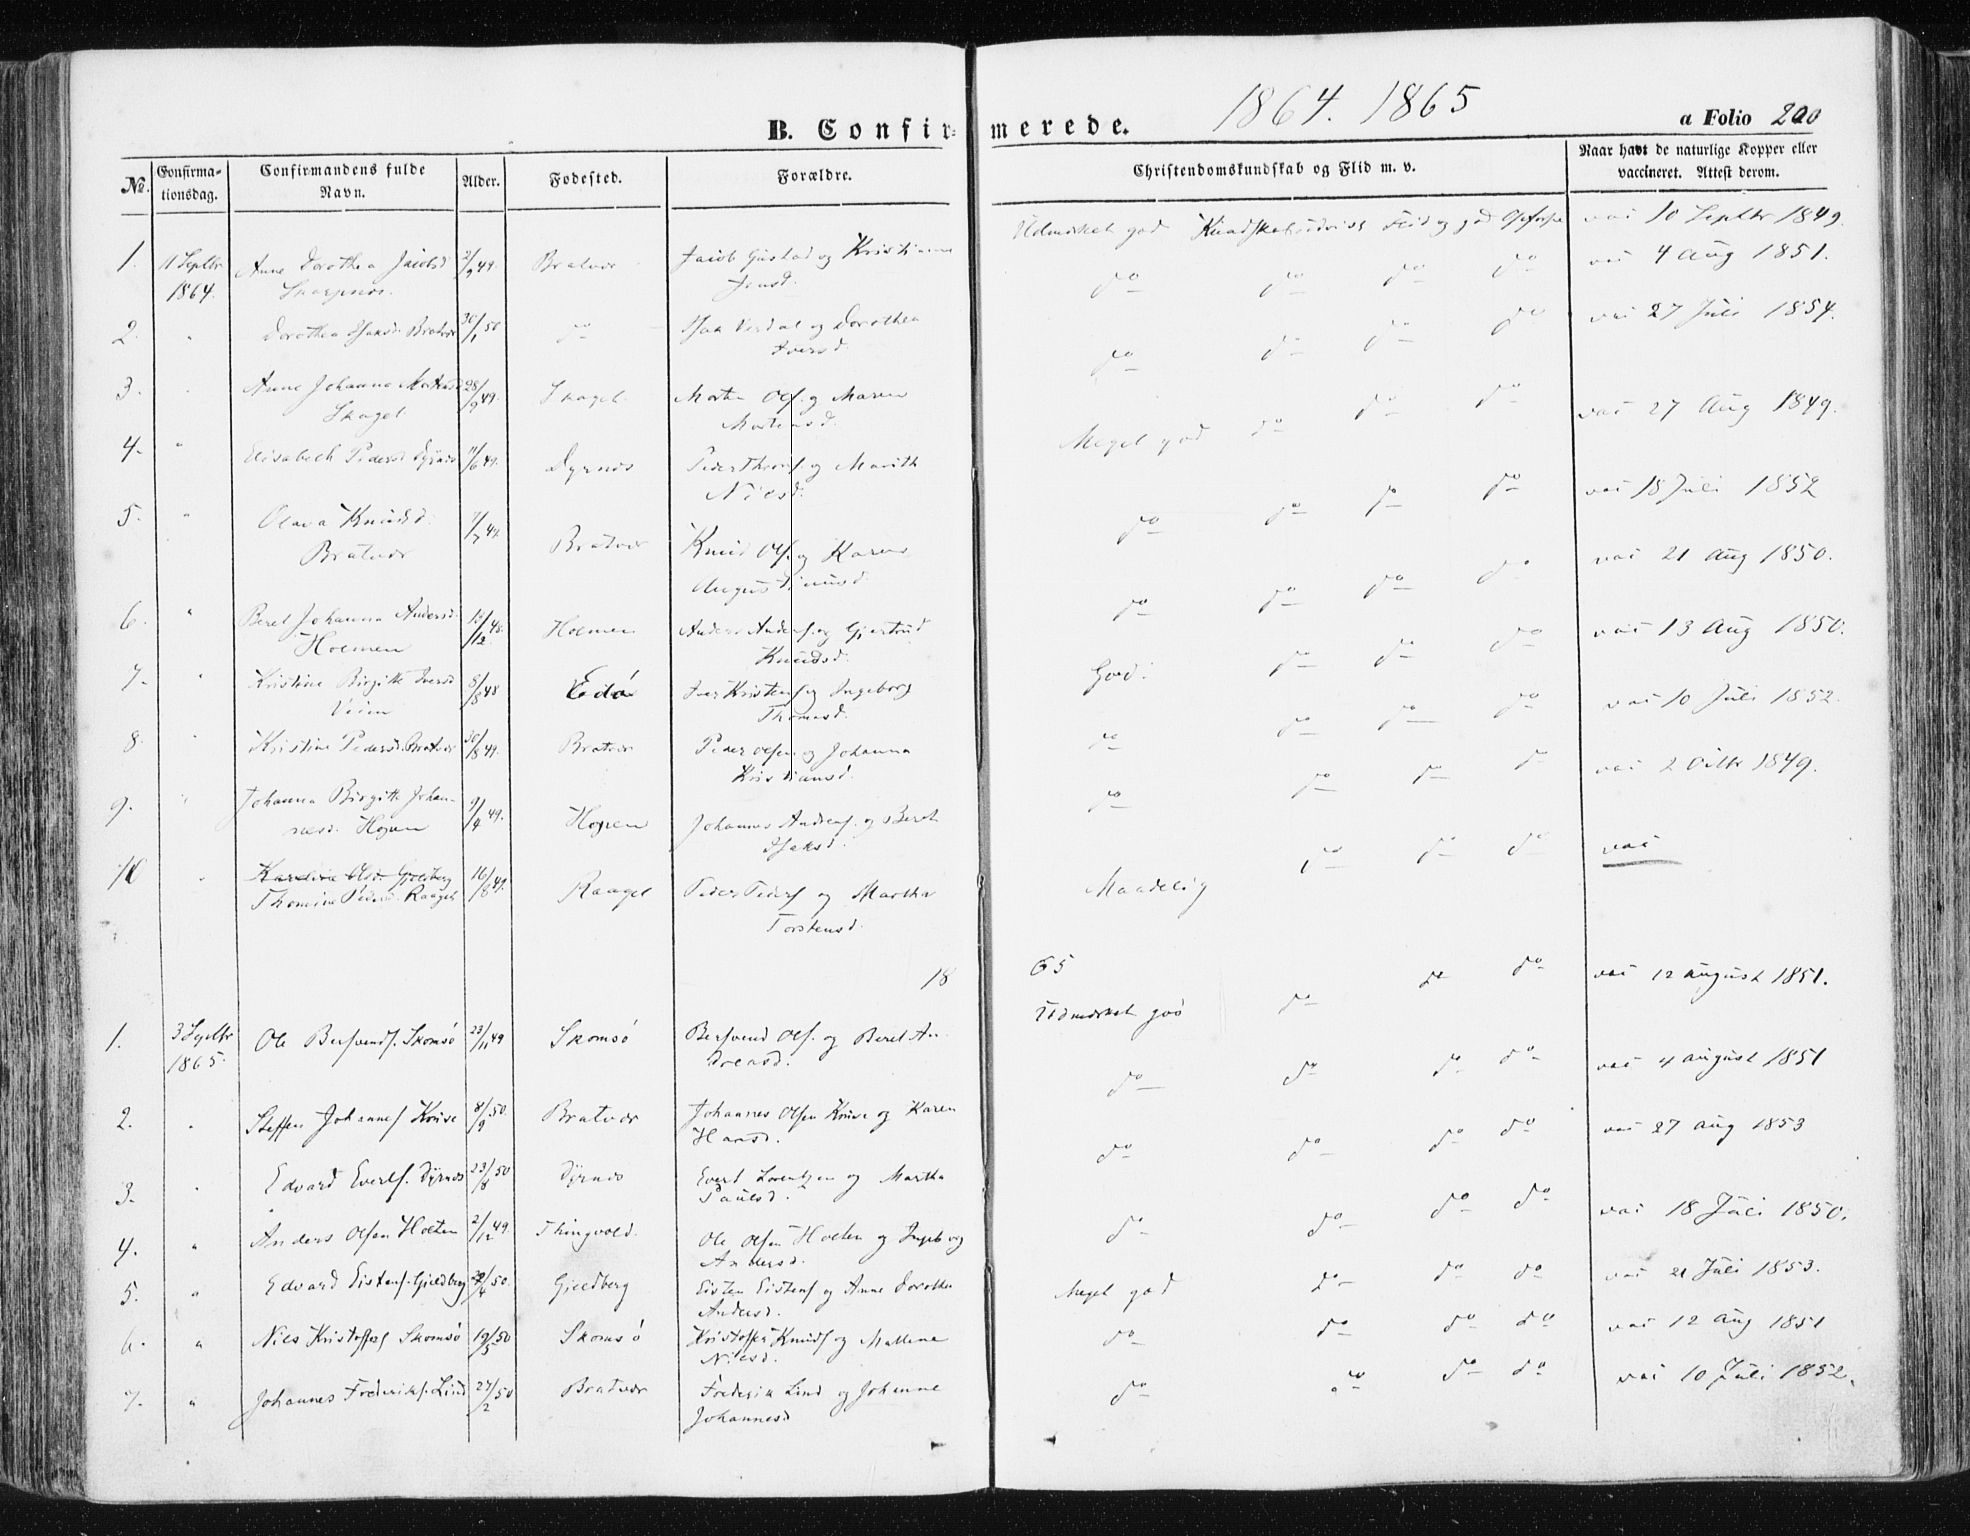 1864. 1865
B. Confirmerede.
a Folio 200
No.
Confirmationsdag.
Confirmandens fulde Navn.
Alder.
Fødested.
Forældre.
Christendomskundskab og Flid m. v.
Naar havt de naturlige Kopper eller vaccineret. Attest derom.
1. 11 Septbr 1864. Anne Dorothea Jacobsd Skarpnes. 2/9 49. Bratvær Jacob Gustad og Kristianne Jensd. Udmærket god Kundskab udvist Flid og god Opførse vac 10 Septbr 1849.
2. " Dorothea Isaksd. Bratvær 30/1 50 do Isak Verdal og Dorothea Iversd. do do do do vac 4 Aug 1851.
3. " Anne Johanna Mortensd Skaget 28/9 49. Skaget. Morten Ols. og Maren Mortensd. do do do do vac 27 Juli 1854.
4. " Elisabeth Pedersd Dyrnes 11/6 49. Dyrnes Peder Thors. og Marith Nilsd. Meget god do do do vac 27 Aug 1849.
5. " Olava Knudsd. Bratvær 7/7 49. Bratvær Knud Ols. og Karen Augustinusd. do do do do vac 18 Juli 1852
6. " Beret Johanna Andersd. Holmen 13/12 48. Holmen Anders Anders. og Gjertrud Knudsd. do do do do vac 21 Aug 1850.
7. " Kristine Birgitte Iversd Veien 5/5 48 Edø Iver Kristens. og Ingeborg Thomasd. God. do do do vac 13 Aug 1850.
8. " Kristine Pedersd. Bratvær 30/8 49. Bratvær Peder Olsen og Johanna Kristiansd. do do do do vac 10 Juli 1852.
9. " Johanna Birgitte Johannesd. Hopen 9/4 49. Hopen Johannes Anders. og Beret Isaksd. do do do do vac 2 Octbr 1849.
10 " Karoline Olsd. Gjeldberg
Thomine Pedersd. Raaget 16/8 49. Raaget Peder Peders. og Martha Torstensd. Maadelig do do do vac
18 65
1. 3 Septbr 1865. Ole Bersvends. Skomsö 23/11 49 Skomsö Bersvend Ols. og Beret Andreasd. Udmærket god do do do vac 12 august 1851.
2. " Steffen Johannes. Kruse 8/9 50. Bratvær Johannes Olsen Kruse og Karen Hansd. do do do do vac 4 august 1851
3. " Edvard Everts. Dyrnes 23/8 50 Dyrnes Evert Lorentzen og Martha Paulsd. do do do do vac 27 aug 1853
4. " Anders Olsen Holten 2/12 49. Thingvold. Ole Olsen Holten og Ingeborg Andersd. do do do do vac 18 Juli 1850.
5. " Edvard Eistens. Gjeldberg /4 50. Gjeldberg Eisten Eistens. og Anne Dorothea Andersd. Meget god do do do vac 21 Juli 1853.
6. " Nils Kristoffers. Skomsö 19/5 50 Skomsö Kristoffer Knuds. og Mallena Nilsd. do do do do vac 12 Aug 1851
7. " Johannes Frederiks. Lind 27/2 50 Bratvær Frederik Lind og Johanne Johannesd do do do do vac 10 Juli 1852.